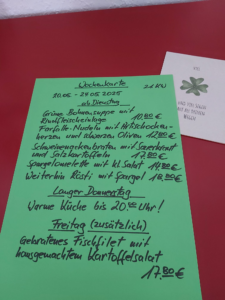 Wochenkarte 21.KW
20.05 - 24.05.2025
ab Dienstag
Grüne Bohnensuppe mit
Rindfleischeinlage 10,80 €
Farfalle-Nudeln mit Artischocken-
herzen und schwarzen Oliven 12,80 €
Schweinenackenbraten mit Sauerkraut
und Salzkartoffeln 13,80 €
Spargelomelette mit kl. Salat 14,80 €
Weiterhin Rösti mit Spargel 18,80 €
Langer Donnerstag
Warme Küche bis 20:00 Uhr!
Freitag (zusätzlich)
Gebratenes Fischfilet mit
hausgemachtem Kartoffelsalat
17,80 €